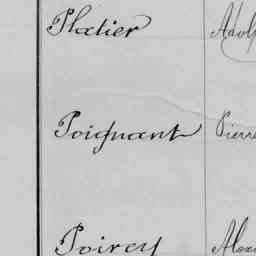 Platier Adolp
Poignant Pierre
Poirey Alex